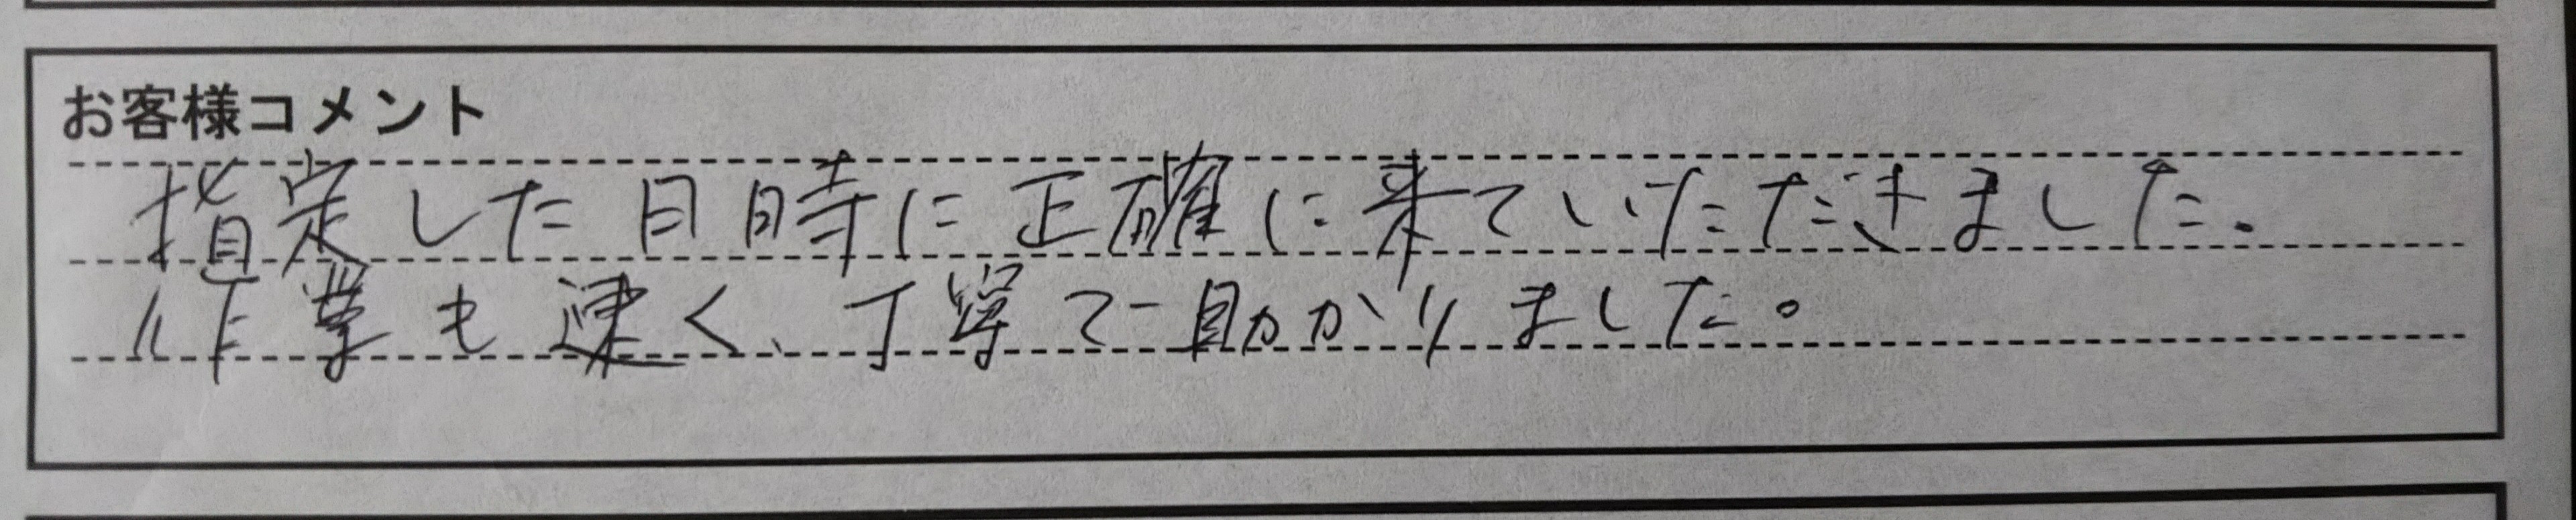 お客様コメント
指定した日時に正確に来ていただきました.
作業も速く、丁寧で助かりました。